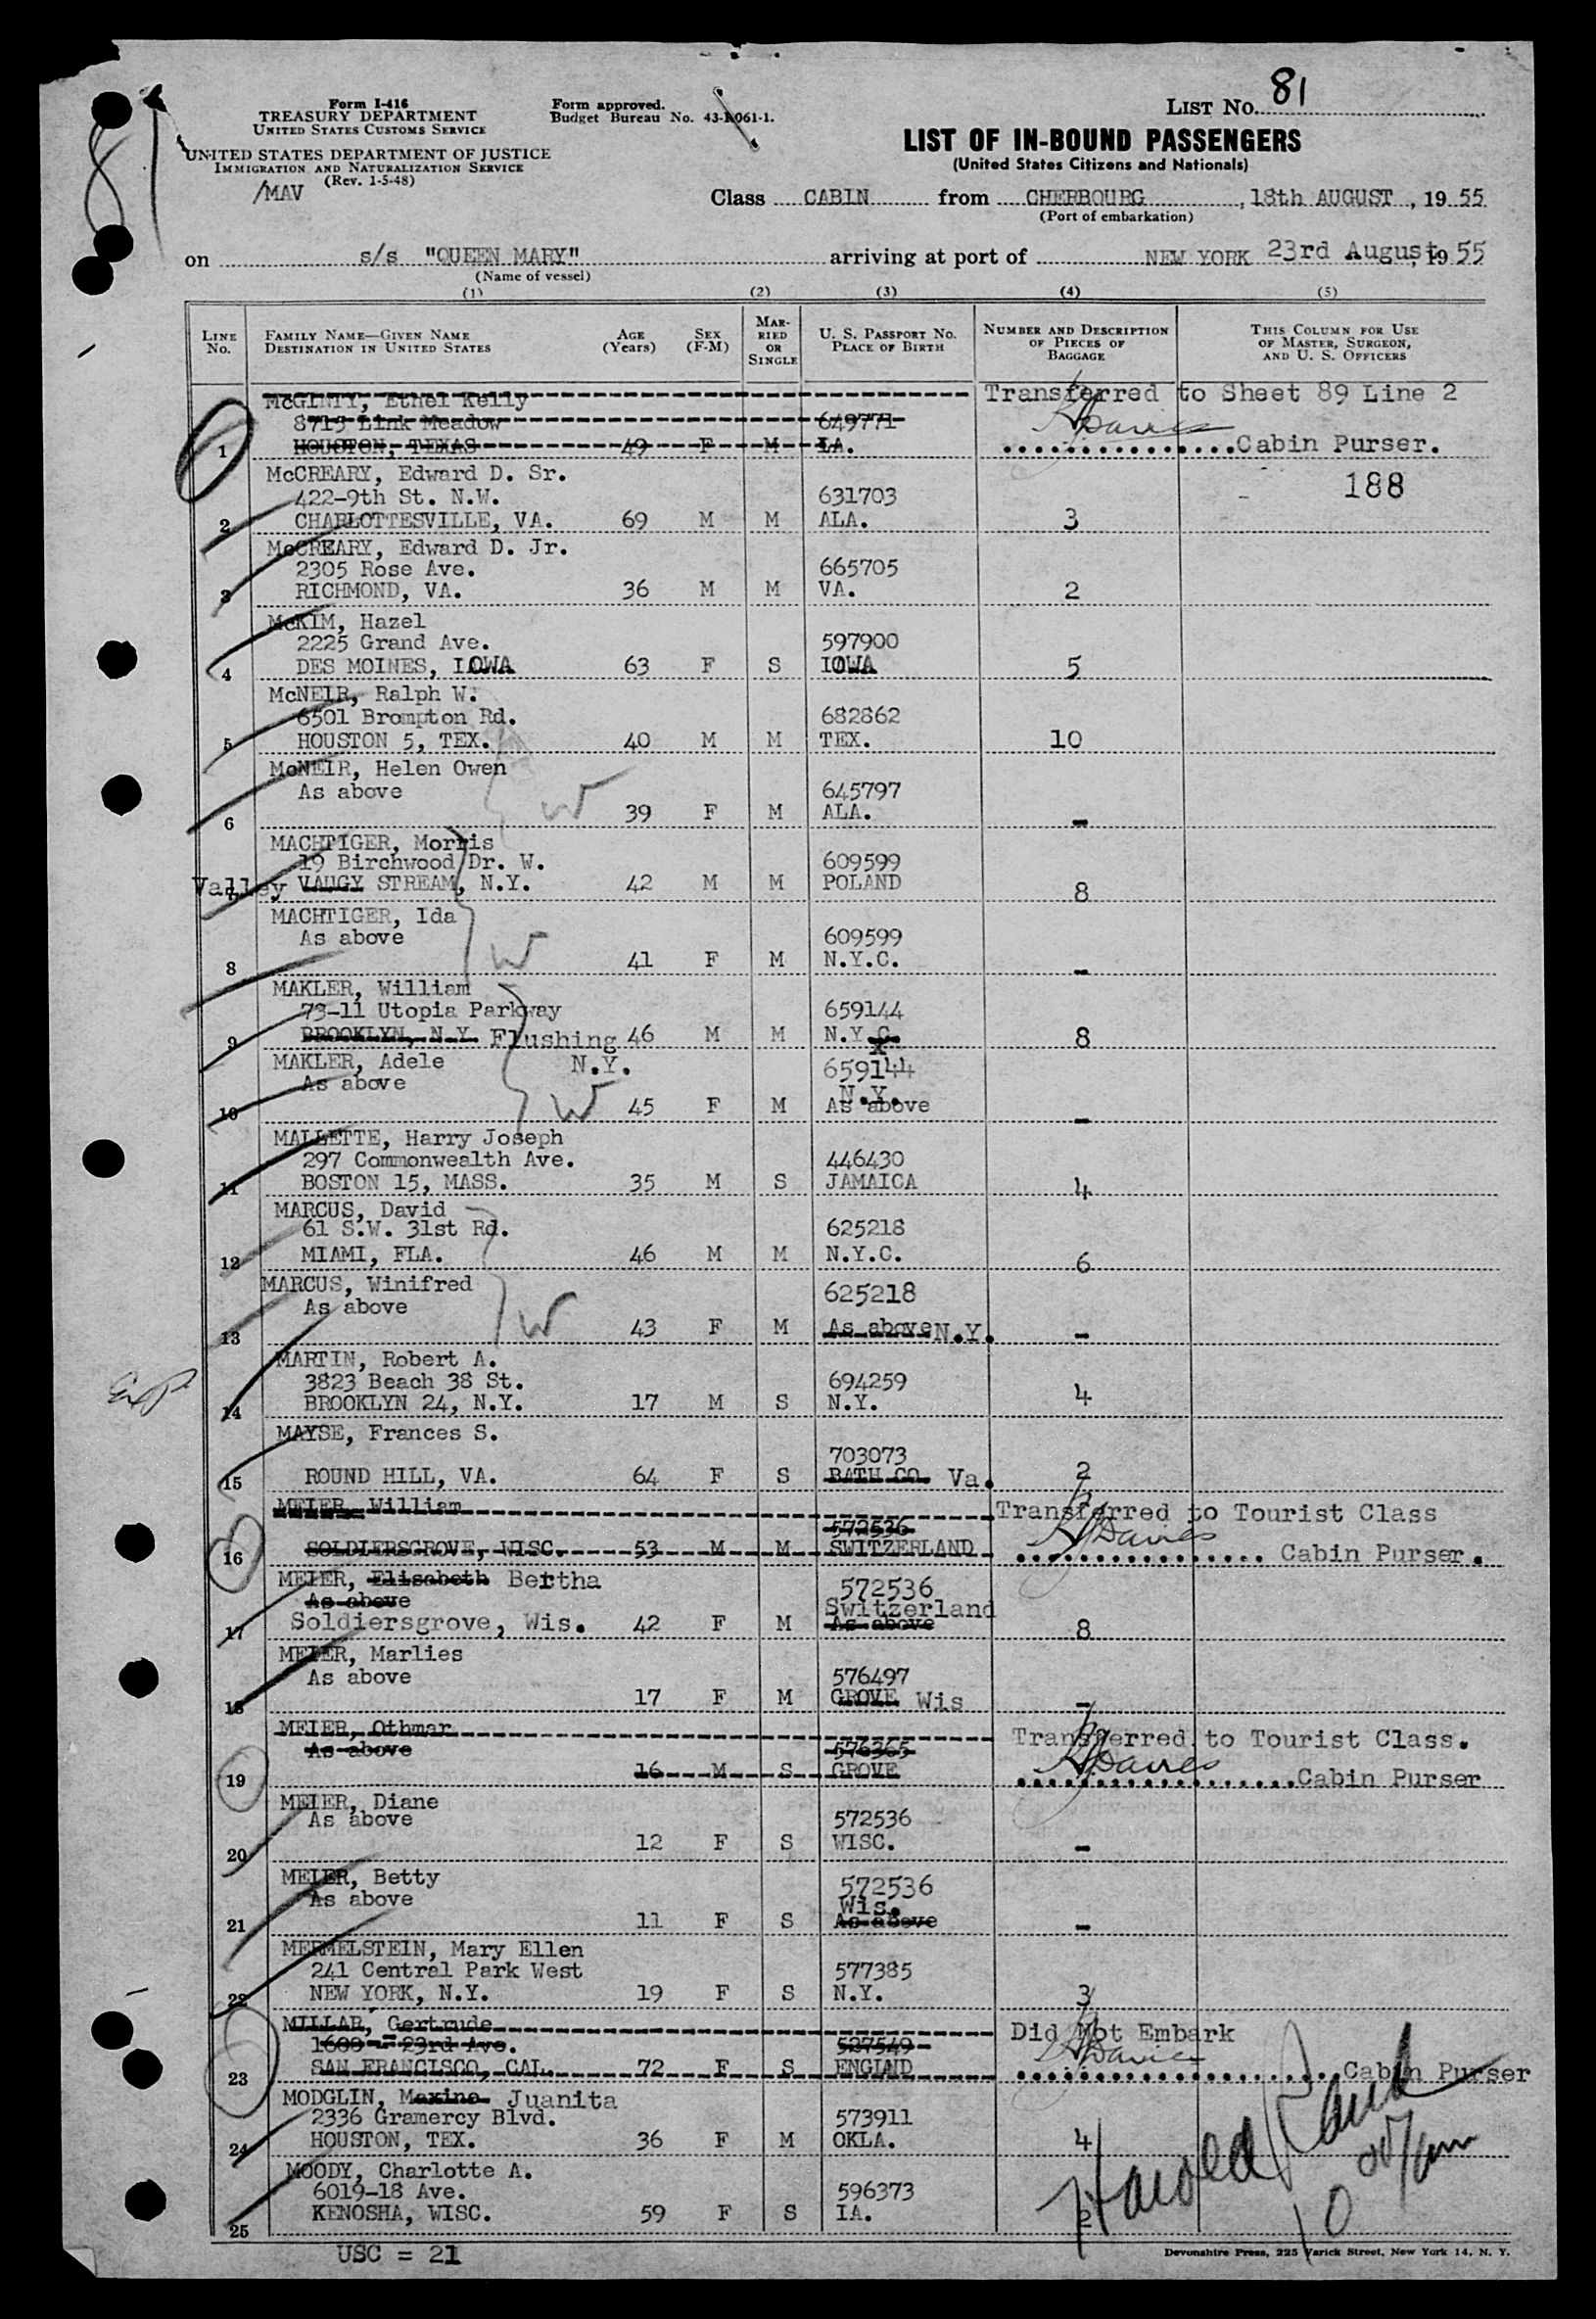 LIST No. 81
Form I-416
TREASURY DEPARTMENT
UNITED STATES CUSTOMS SERVICE
Form approved.
Budget Bureau No. 43-R061-1.
LIST OF IN-BOUND PASSENGERS
(United States Citizens and Nationals)
UNITED STATES DEPARTMENT OF JUSTICE
IMMIGRATION AND NATURALIZATION SERVICE
(Rev. 1-5-48)
/MAV
Class CABIN from CHERBOURG, 18th AUGUST, 19 55
(Port of embarkation)
on s/s "QUEEN MARY" arriving at port of NEW YORK 23rd August, 19 55
(Name of vessel)
(1) (2) (3) (4) (5)
LINE No. FAMILY NAME—GIVEN NAME DESTINATION IN UNITED STATES AGE (Years) SEX (F-M) MARRIED OR SINGLE U. S. PASSPORT No. PLACE OF BIRTH NUMBER AND DESCRIPTION OF PIECES OF BAGGAGE THIS COLUMN FOR USE OF MASTER, SURGEON, AND U. S. OFFICERS
McGINTY, Ethel Kelly Transferred to Sheet 89 Line 2
8715 Link Meadow 649771 Davies
1 HOUSTON, TEXAS 49 F M LA. Cabin Purser.
McCREARY, Edward D. Sr. 188
422-9th St. N.W. 631703
2 CHARLOTTESVILLE, VA. 69 M M ALA. 3
McCREARY, Edward D. Jr.
2305 Rose Ave. 665705
3 RICHMOND, VA. 36 M M VA. 2
McKIM, Hazel
2225 Grand Ave. 597900
4 DES MOINES, IOWA 63 F S IOWA 5
McNEIR, Ralph W.
6501 Brompton Rd. 682862
5 HOUSTON 5, TEX. 40 M M TEX. 10
McNEIR, Helen Owen
As above 645797
6 W 39 F M ALA. -
MACHTIGER, Morris
19 Birchwood Dr. W. 609599
7 Valley VAUGY STREAM, N.Y. 42 M M POLAND 8
MACHTIGER, Ida
As above 609599
8 W 41 F M N.Y.C. -
MAKLER, William
73-11 Utopia Parkway 659144
9 BROOKLYN, N.Y. Flushing 46 M M N.Y.C. 8
MAKLER, Adele N.Y. 659144
As above N.Y.
10 W 45 F M As above -
MALLETTE, Harry Joseph
297 Commonwealth Ave. 446430
11 BOSTON 15, MASS. 35 M S JAMAICA 4
MARCUS, David
61 S.W. 31st Rd. 625218
12 MIAMI, FLA. 46 M M N.Y.C. 6
MARCUS, Winifred 625218
As above
13 W 43 F M As above N.Y. -
MARTIN, Robert A.
3823 Beach 38 St. 694259
14 BROOKLYN 24, N.Y. 17 M S N.Y. 4
MAYSE, Frances S.
703073
15 ROUND HILL, VA. 64 F S BATH CO. Va. 2
MEIER, William Transferred to Tourist Class
572536 Davies
16 SOLDIERSGROVE, WISC. 53 M M SWITZERLAND Cabin Purser.
MEIER, Elisabeth Bertha 572536
As above Switzerland
17 Soldiersgrove, Wis. 42 F M As above 8
MEIER, Marlies
As above 576497
18 17 F M GROVE Wis -
MEIER, Othmar Transferred to Tourist Class.
As above 576365 Davies
19 16 M S GROVE Cabin Purser
MEIER, Diane
As above 572536
20 12 F S WISC. -
MEIER, Betty 572536
As above Wis.
21 11 F S As above -
MERMELSTEIN, Mary Ellen
241 Central Park West 577385
22 NEW YORK, N.Y. 19 F S N.Y. 3
MILLAR, Gertrude Did Not Embark
1600 - 23rd Ave. 527549 Davies
23 SAN FRANCISCO, CAL. 72 F S ENGLND Cabin Purser
MODGLIN, Maxine Juanita
2336 Gramercy Blvd. 573911
24 HOUSTON, TEX. 36 F M OKLA. 4
MOODY, Charlotte A.
6019-18 Ave. 596373
25 KENOSHA, WISC. 59 F S IA. 2
Harold
10 00/am
USC = 21
Devonshire Press, 225 Varick Street, New York 14, N. Y.